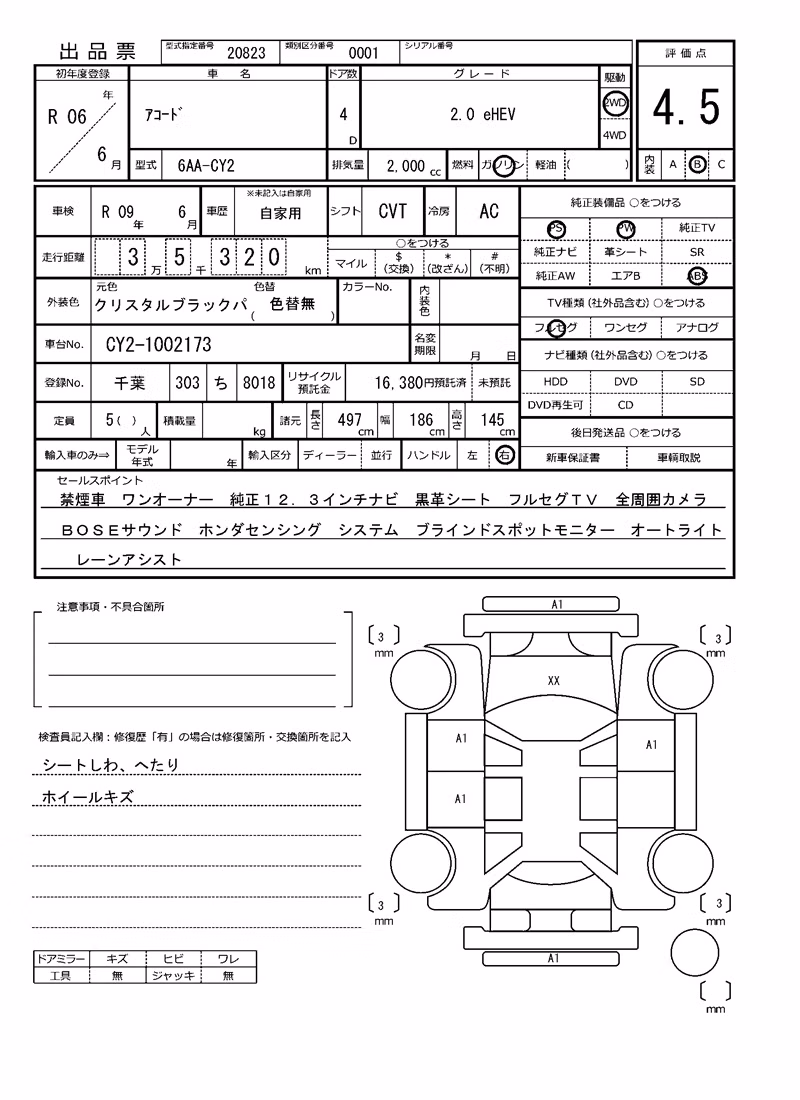 出品票 型式指定番号 20823 類別区分番号 0001 シリアル番号
評価点
4.5
内装 A B C
初年度登録 車名 ドア数 グレード 駆動
R 06 年 6 月 アコード 4 D 2.0 eHEV 2WD
4WD
型式 6AA-CY2 排気量 2,000 cc 燃料 ガソリン 軽油 ( )
車検 R 09 年 6 月 車歴 ※未記入は自家用 自家用 シフト CVT 冷房 AC
走行距離 3 万 5 千 3 2 0 km
○をつける
マイル $(交換) *(改ざん) #(不明)
外装色 元色 クリスタルブラックパ 色替 ( 色替無 ) カラーNo. 内装色
車台No. CY2-1002173 名変期限 月 日
登録No. 千葉 303 ち 8018 リサイクル預託金 16,380円預託済 未預託
定員 5( ) 人 積載量 kg 諸元 長さ 497 cm 幅 186 cm 高さ 145 cm
輸入車のみ⇒ モデル年式 年 輸入区分 ディーラー 並行 ハンドル 左 右
純正装備品 ○をつける
PS PW 純正TV
純正ナビ 革シート SR
純正AW エアB ABS
TV種類(社外品含む)○をつける
フルセグ ワンセグ アナログ
ナビ種類(社外品含む)○をつける
HDD DVD SD
DVD再生可 CD
後日発送品 ○をつける
新車保証書 車輌取説
セールスポイント
禁煙車 ワンオーナー 純正12.3インチナビ 黒革シート フルセグTV 全周囲カメラ
BOSEサウンド ホンダセンシング システム ブラインドスポットモニター オートライト
レーンアシスト
注意事項・不具合箇所
検査員記入欄:修復歴「有」の場合は修復箇所・交換箇所を記入
シートしわ、へたり
ホイールキズ
ドアミラー キズ ヒビ ワレ
工具 無 ジャッキ 無
A1
[ 3 ] mm
[ 3 ] mm
XX
A1
A1
A1
[ 3 ] mm
[ 3 ] mm
A1
[ ] mm